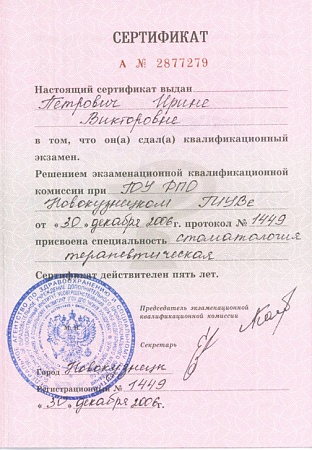 СЕРТИФИКАТ
А № 2877279
Настоящий сертификат выдан
Петрович Ирине
Викторовне
в том, что он(а) сдал(а) квалификационный
экзамен.
Решением экзаменационной квалификационной
комиссии при ГОУ ДПО
Новокузнецком ГИУВе
от «30» декабря 2006г. протокол № 1449
присвоена специальность стоматология
терапевтическая
Сертификат действителен пять лет.
Председатель экзаменационной
квалификационной комиссии
М.П.
Секретарь
Город Новокузнецк
Регистрационный № 1449
«30» декабря 2006г.